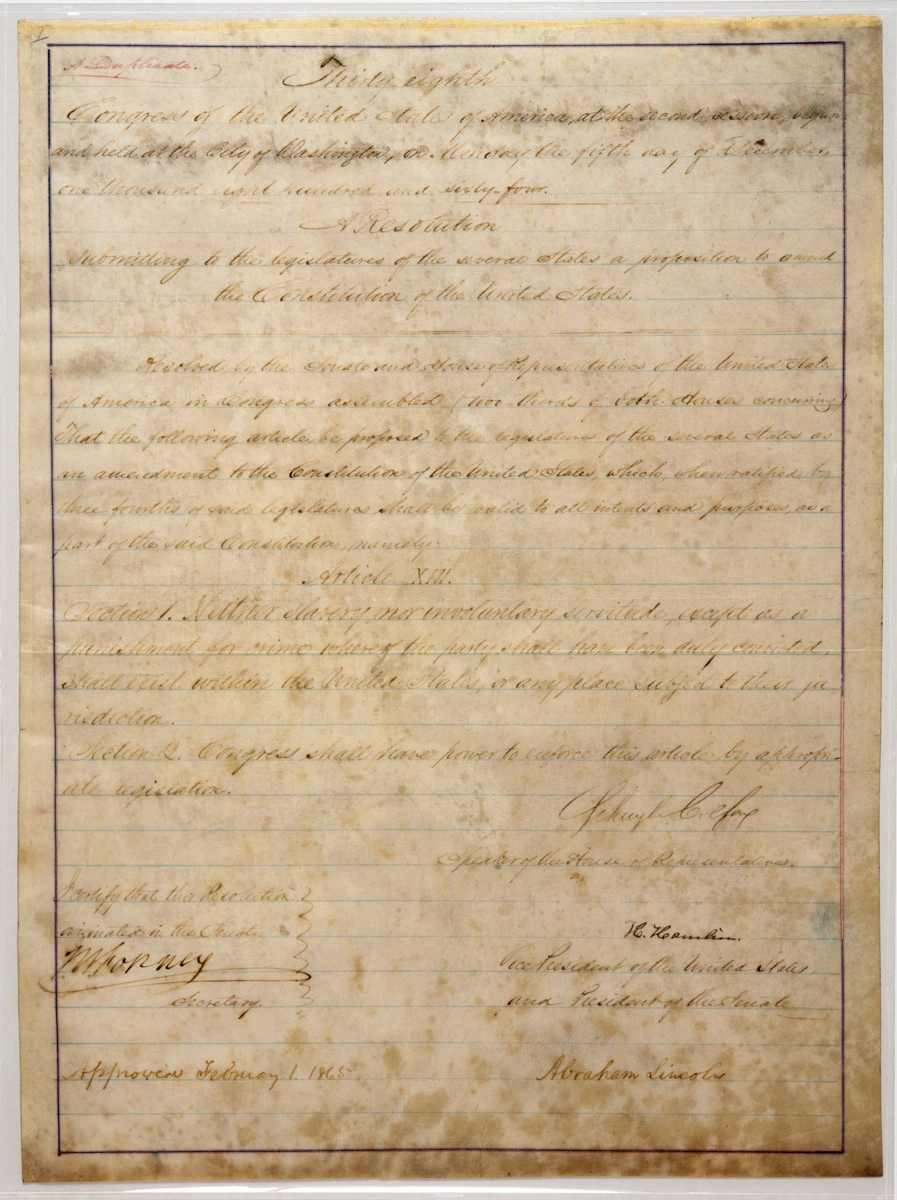 A Duplicate.
Thirty eighth
Congress of the United States of America, at the second session, begun
and held at the City of Washington, on Monday the fifth day of December,
one thousand eight hundred and sixty-four.
A Resolution
submitting to the legislatures of the several States a proposition to amend
the Constitution of the United States.
Resolved by the Senate and House of Representatives of the United States
of America in Congress assembled, (two thirds of both Houses concurring)
That the following article be proposed to the legislatures of the several States as
an amendment to the Constitution of the United States, which, when ratified by
three fourths of said legislatures shall be valid to all intents and purposes, as a
part of the said Constitution, namely:
Article XIII.
Section 1. Neither slavery nor involuntary servitude, except as a
punishment for crime whereof the party shall have been duly convicted,
shall exist within the United States, or any place subject to their ju
risdiction.
Section 2. Congress shall have power to enforce this article by appropri-
ate legislation.
Schuyler Colfax
Speaker of the House of Representatives.
I certify that this Resolution
originated in the Senate
H. Hamlin.
J W Forney
Vice President of the United States
Secretary.
and President of the Senate
Approved February 1. 1865
Abraham Lincoln